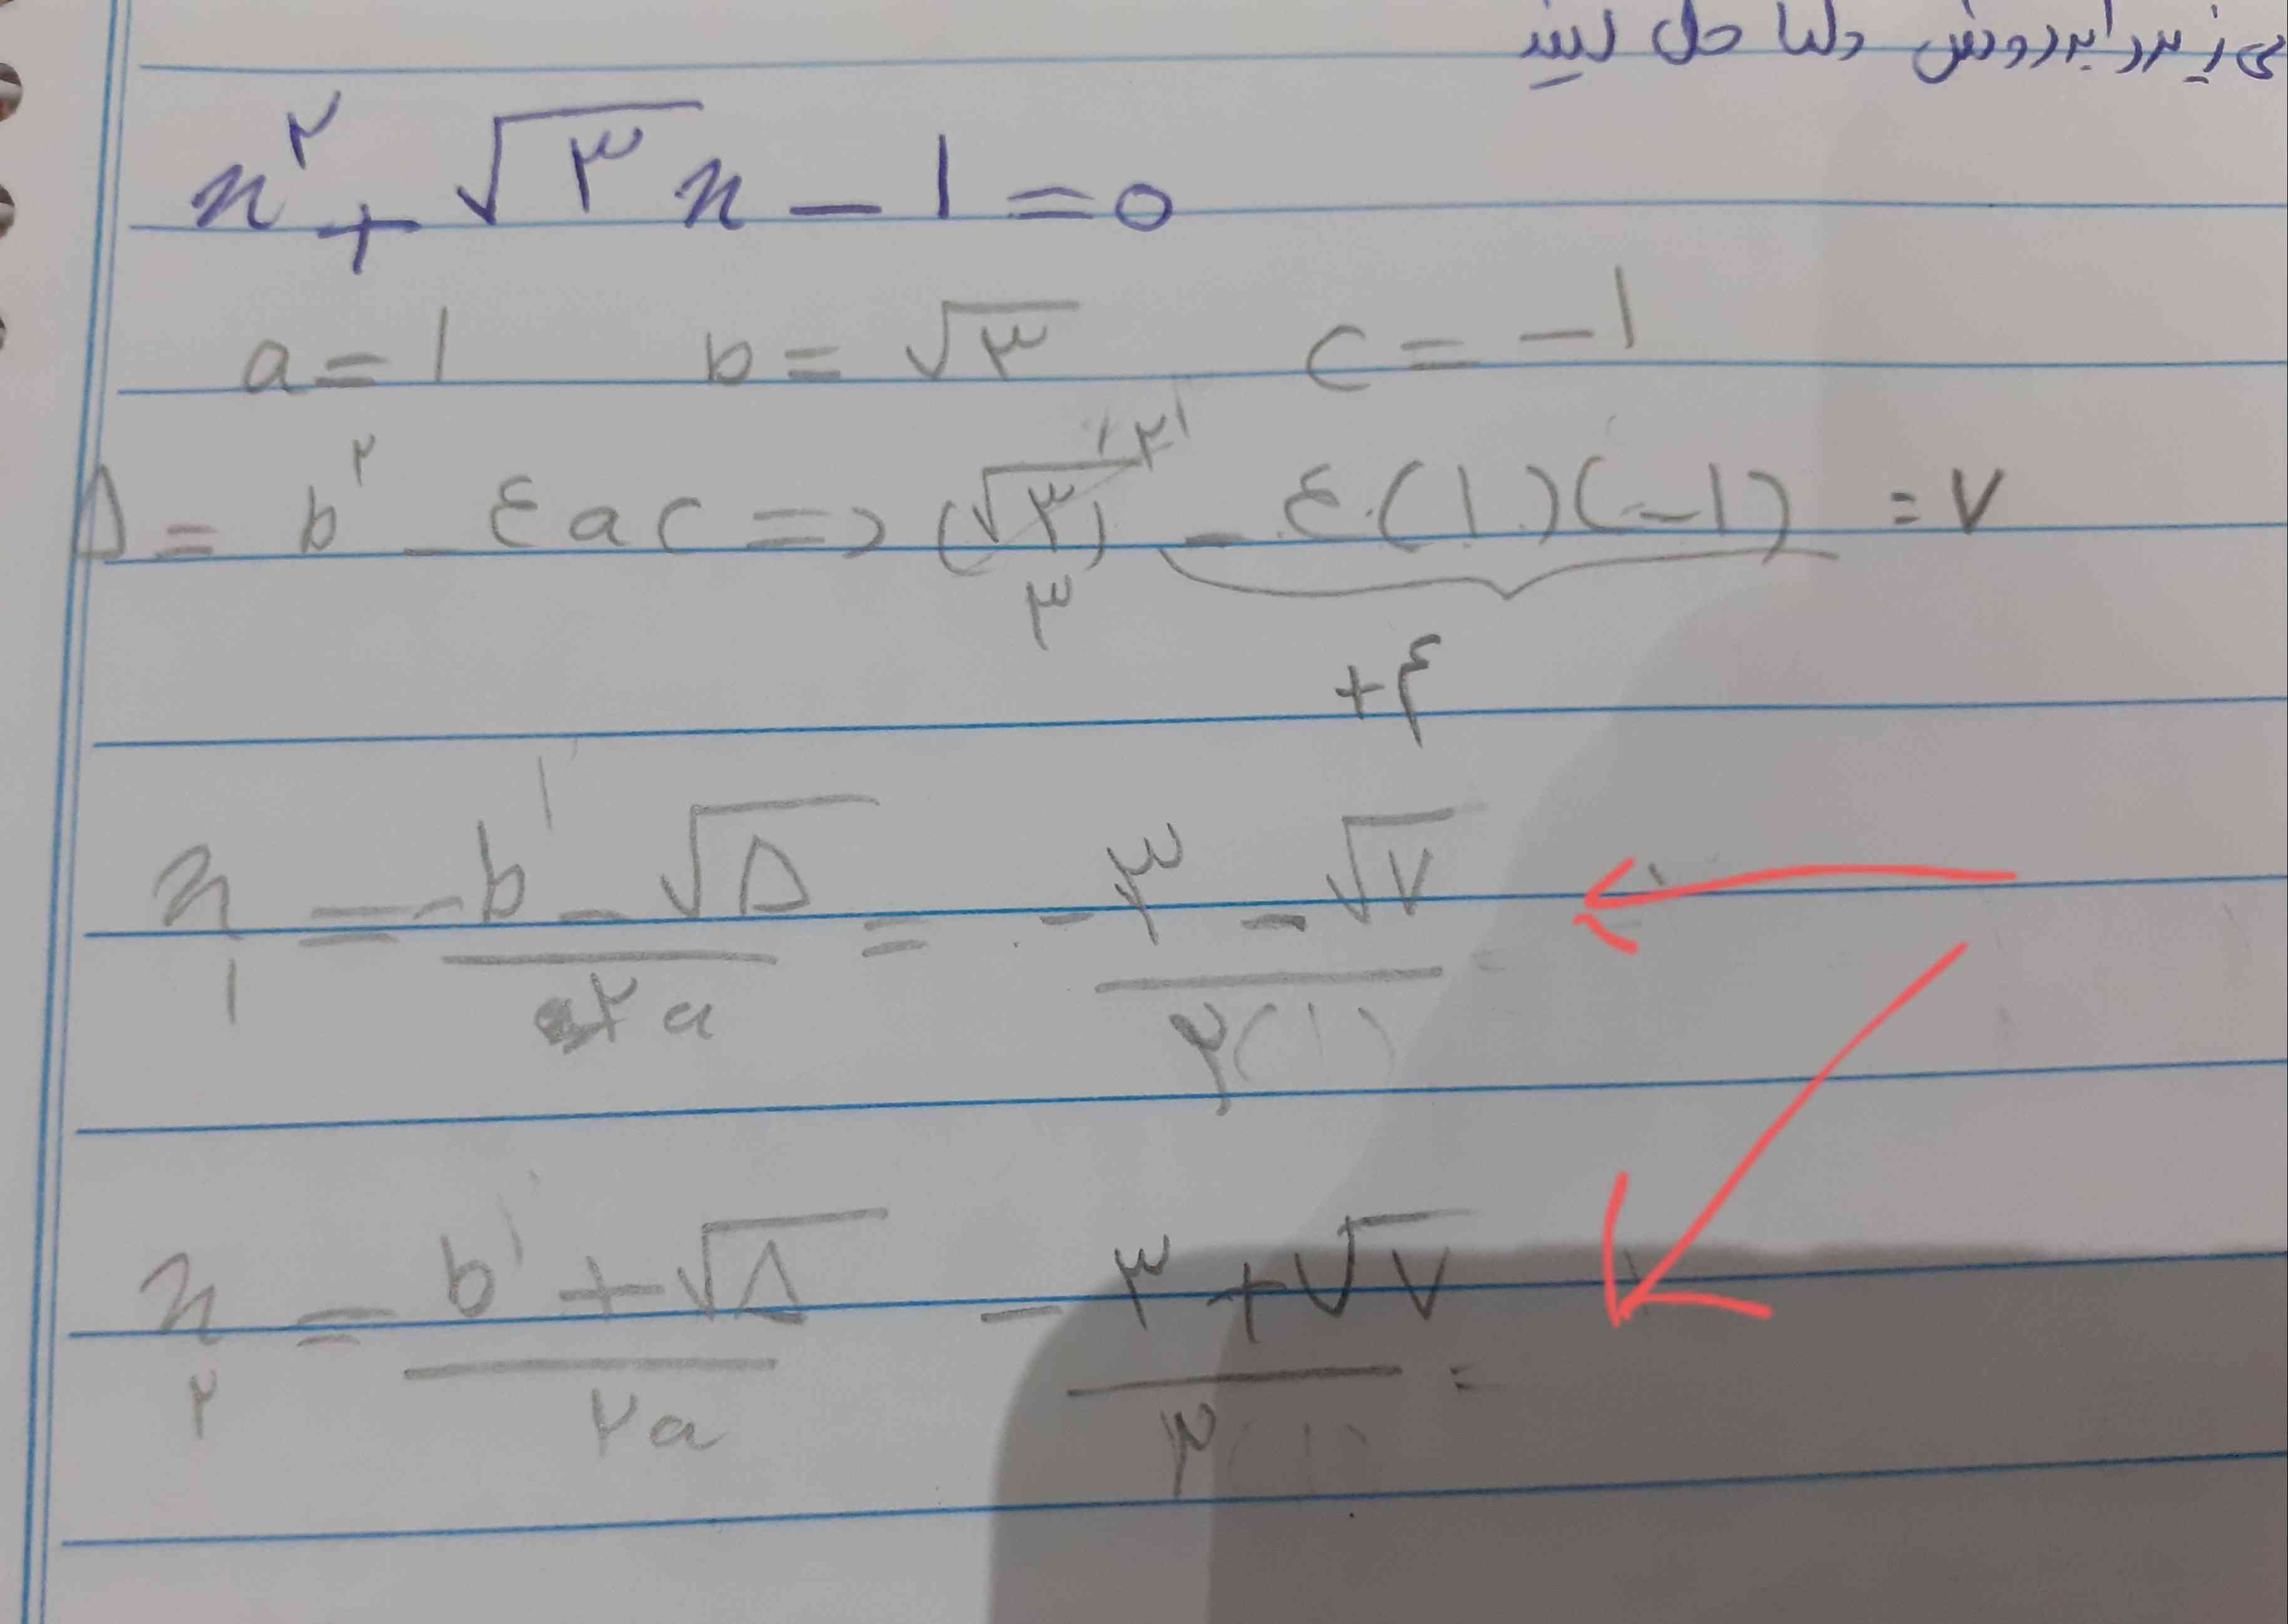 زیر را به روش دلتا حل کنید
x² + √۳x − ۱ = ۰
a = ۱ b = √۳ c = −۱
Δ = b² − ۴ac => (√۳)² − ۴(۱)(−۱) = ۷
۳ +۴
x₁ = (−b − √Δ)/(۲a) = (−۳ − √۷)/(۲(۱))
x₂ = (b + √Δ)/(۲a) (−۳ + √۷)/(۲(۱)) =